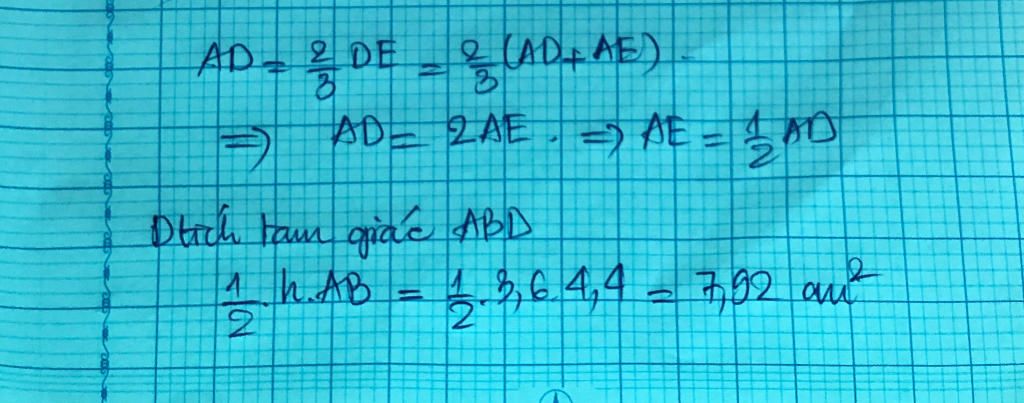 AD = 2/3 DE = 2/3 (AD + AE).
⇒ AD = 2AE. ⇒ AE = 1/2 AD
Dtích tam giác ABD
1/2 . h.AB = 1/2 . 3,6. 4,4 = 7,92 cm²